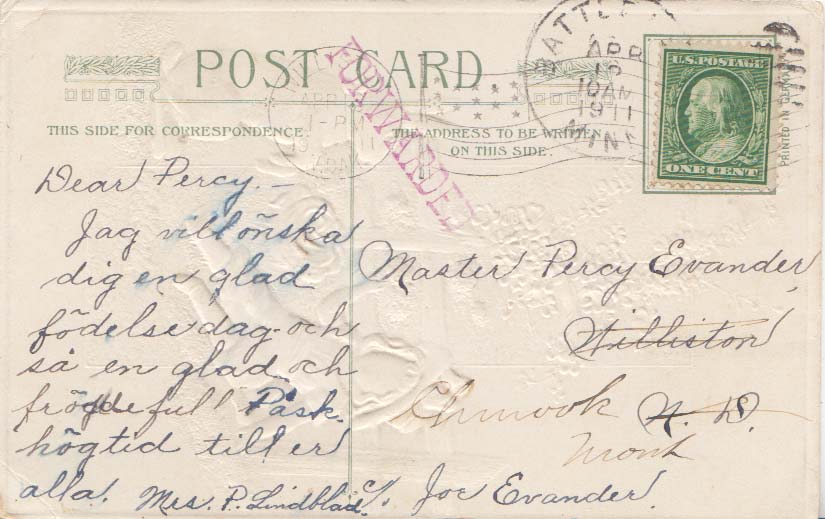 POST CARD
THIS SIDE FOR CORRESPONDENCE.
THE ADDRESS TO BE WRITTEN
ON THIS SIDE.
FORWARDED
BATTLE
APR
10AM
1911
MINN
APR
1-PM
U.S. POSTAGE
ONE CENT
PRINTED IN GERMANY
Dear Percy.—
Jag vill önska
dig en glad
födelsedag och
så en glad och
fröjdefull Påsk-
högtid till er
alla. Mrs. P. Lindblad.
Master Percy Evander
Williston
Chinook N. D.
Mont
c/o Joe Evander.